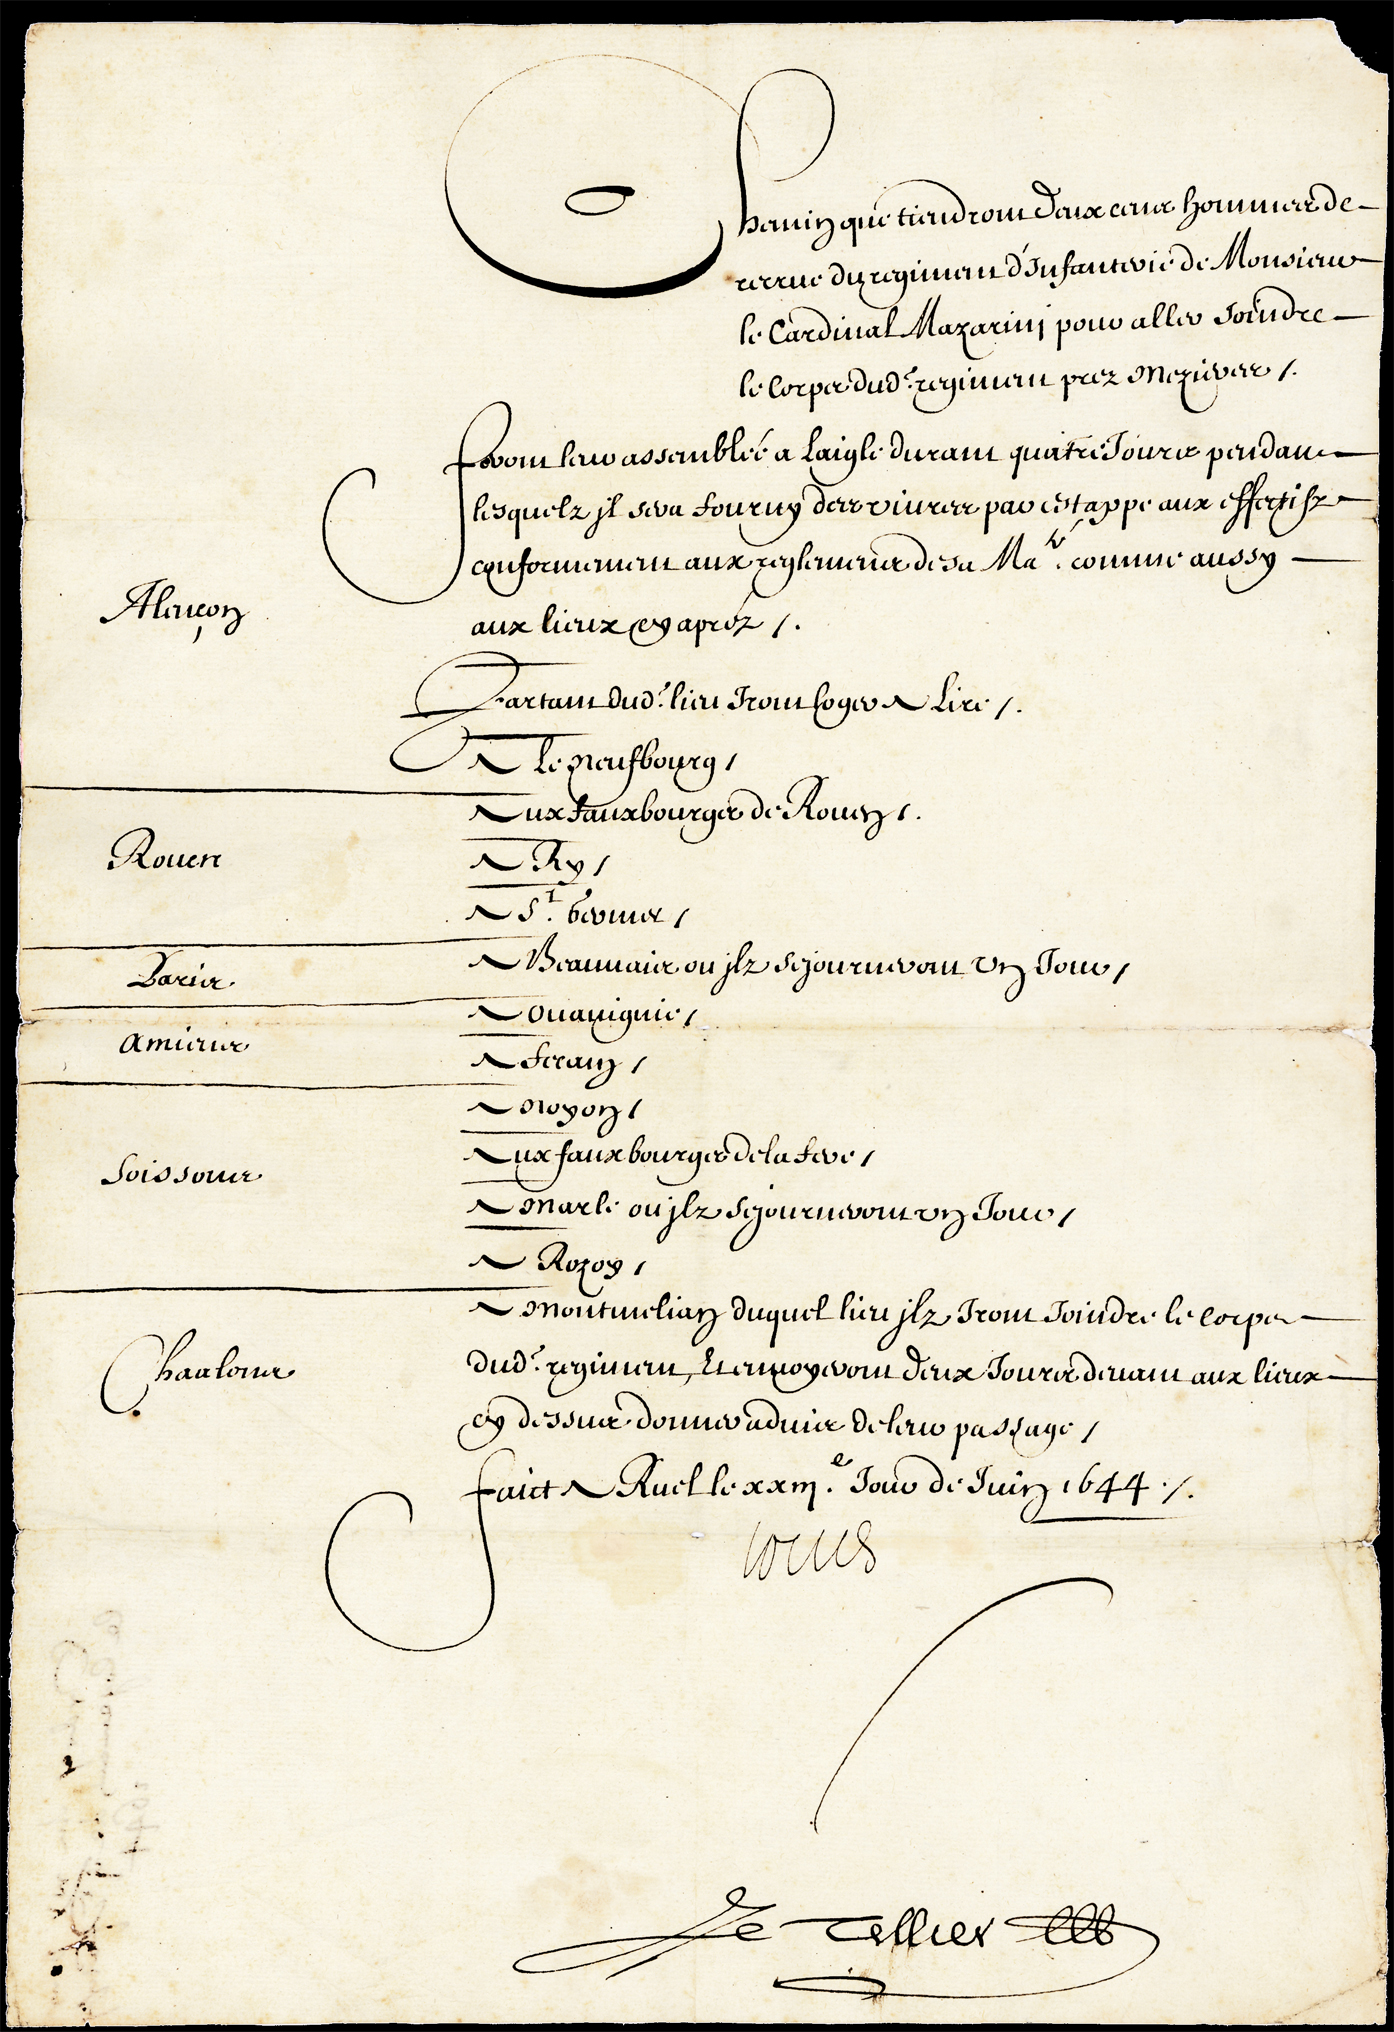 Chemin que tiendront deux cens hommes de
recrue du regiment d'Infanterie de Monsieur
le Cardinal Mazarinj pour aller Joindre
le Corps dud.t regiment prez Mezieres /.
Feront leur assemblée a Laigle durant quatre Jours pendant
lesquelz jl sera fourny des viures par estappe aux effectifz
conformement aux reglemens de sa Ma.té comme aussy
Alençon
aux lieux cy apréz /.
Partant dud.t lieu Iront loger A Lire /.
A le Neufbourg /
Aux fauxbourgs de Rouen /.
Rouen
A Ry /
A S.t Germer /
Paris
A Beauuais ou jlz sejourneront vn Jour /
A Ouauignie /
Amiens
A Feran /
A Noyon /
Aux fauxbourgs de la Fere /
Soissons
A Marle ou jlz sejourneront vn Jour /
A Rozoy /
A Montmelian duquel lieu jlz Iront Joindre le Corps
Chaalons
dud.t regiment, Et enuoyeront deux Jours deuant aux lieux
cy dessus donner aduis de leur passage /
Faict A Ruel le xxiij.e Jour de Juin 1644 /.
Louis
Le Tellier